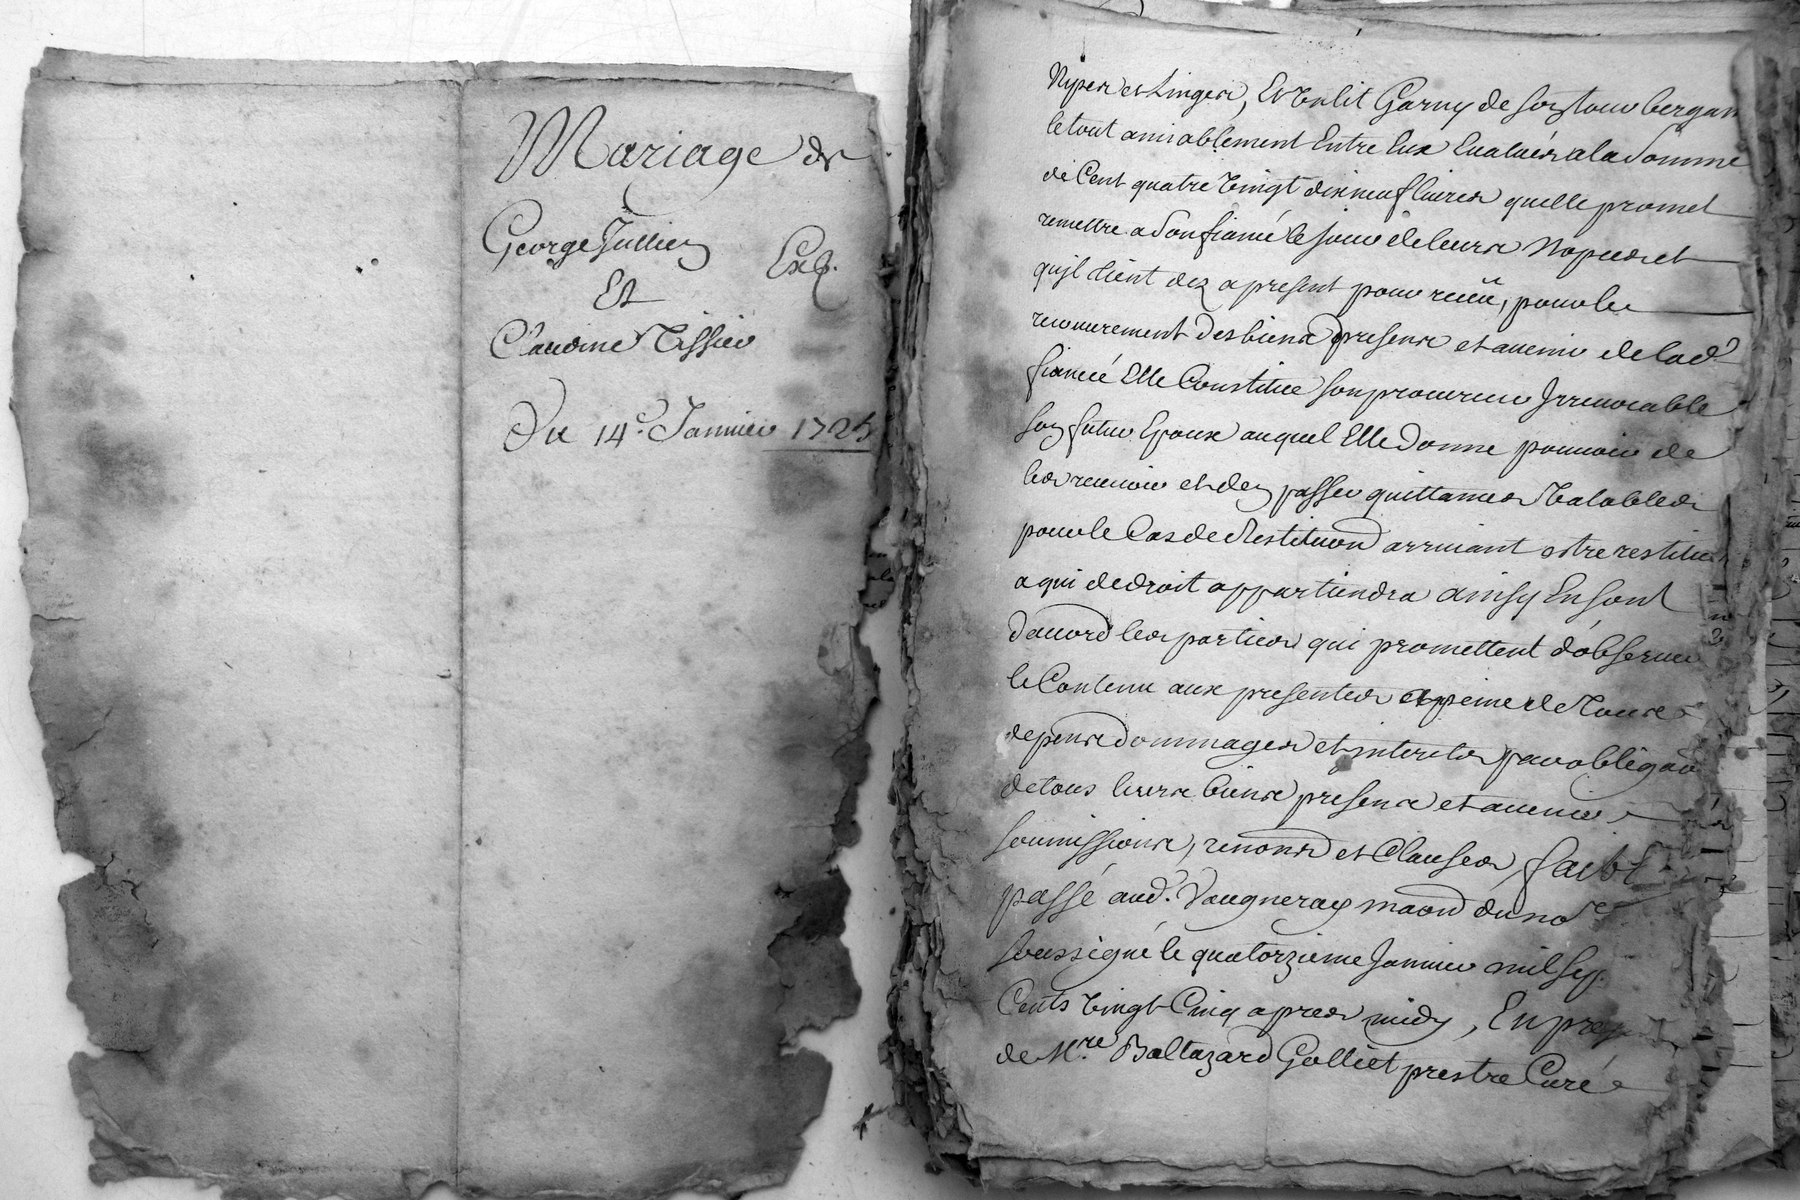 Mariage de
George Jullien
Exp.
Et
Claudine Tissier
Du 14e. Janvier 1725
Nipes et Linges, Et Un lit Garny de son tour bergam
le tout amiablement Entre Eux Evalués a la Somme
de Cent quatre Vingt dix neuf livres quelle promet
remettre a Son fiancé le jour de leurs Nopces et
qu'jl tient dez a present pour receü, pour le
recouvrement Des biens presens et avenir de lad.
fiancée Elle Constitue son procureur Jrrevocable
son futur Epoux auquel Elle Donne pouvoir de
les recevoir et d'en passer quittances Valables
pour le Cas de Restituon arrivant estre restitué
a qui de droit appartiendra ainsy En sont
Daccord les parties qui promettent d'observer
le Contenu aux presentes a peine de Tous
depens dommages et interets par obligaon
de tous leurs biens presens et avenir
soumissions, renons et Clauses, fait
passé aud. Vaugneray maon du nore
soussigné le quatorzieme Janvier mil sep
Cents Vingt Cinq apres midy, En pre
de Mre Baltazard Golliet prestre Curé